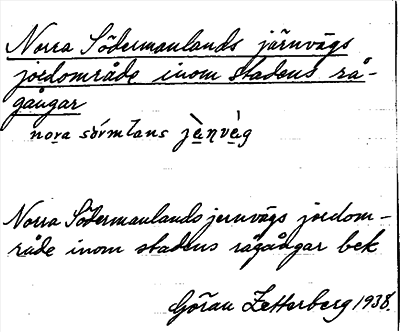 Norra Södermanlands järnvägs
jordområde inom stadens rå-
gångar
nora sörmlans jèṇvág
Norra Södermanlands jernvägs jordom-
råde inom stadens rågångar bek
Göran Zetterberg 1938.